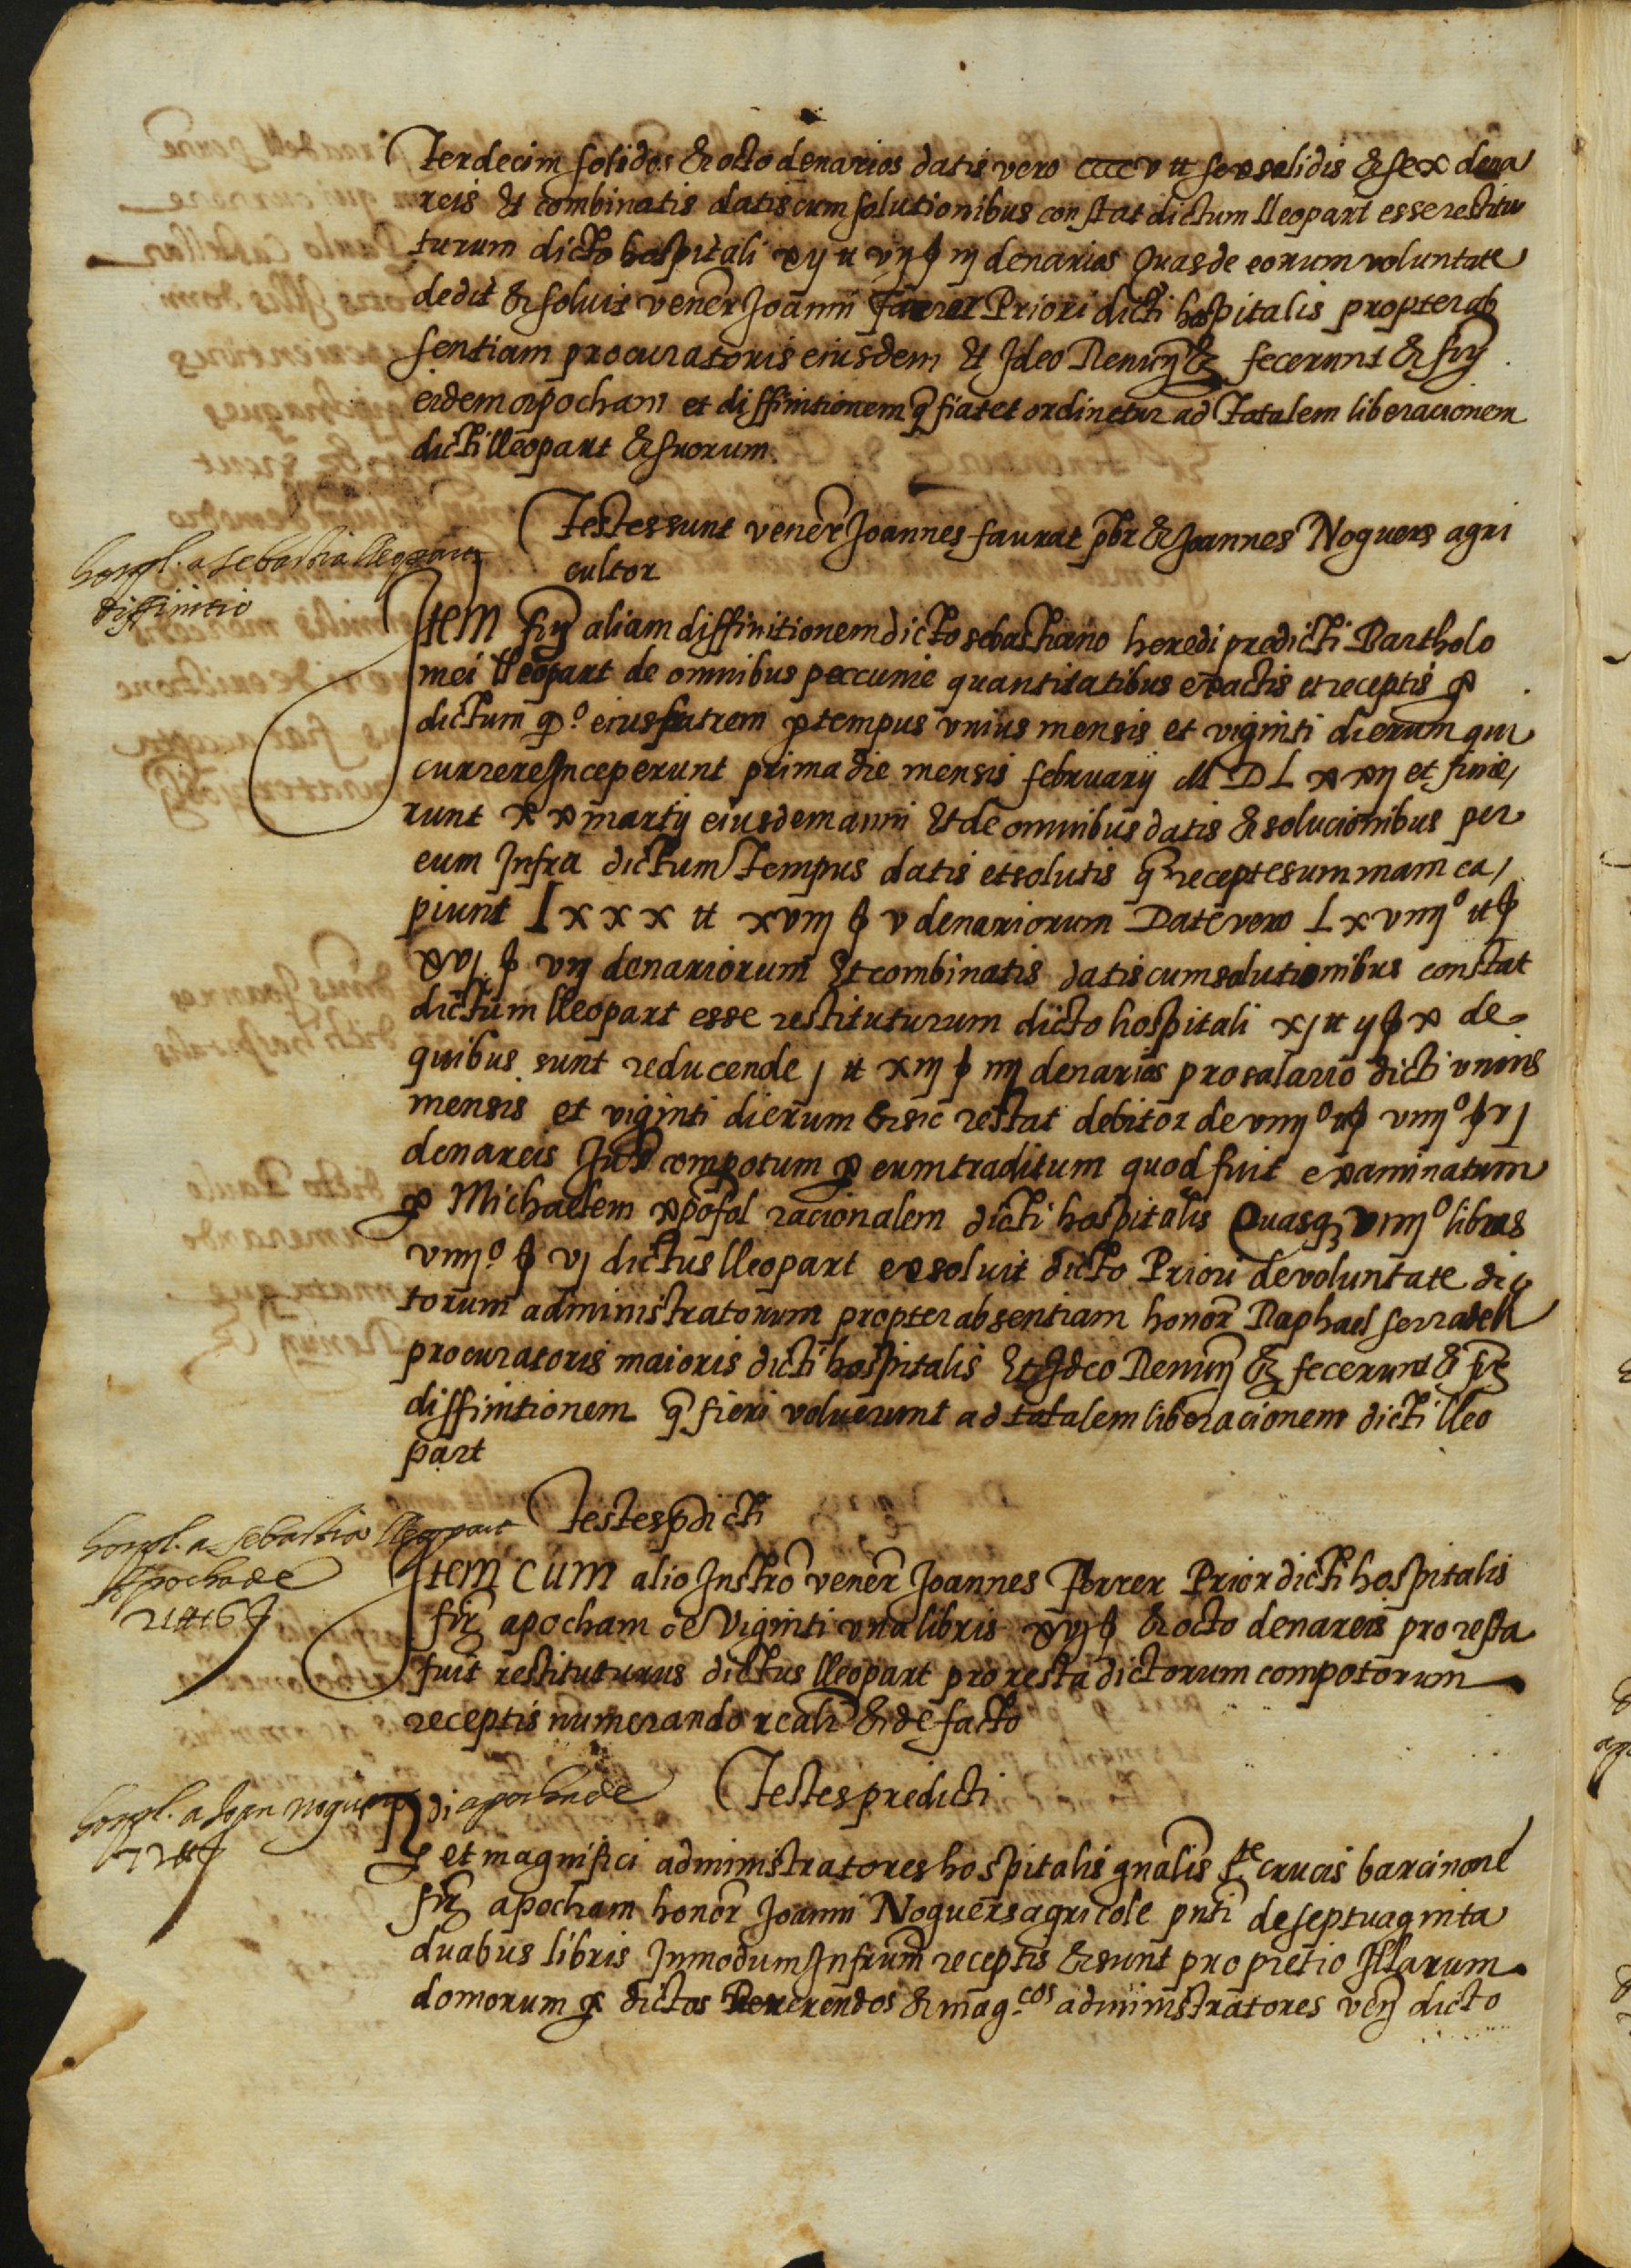 Terdecim solidos & octo denarios datis vero ccccv ll sex solidis & sex dena
reis Et combinatis datis cum solutionibus constat dictum lleopart esse restitu
turum dicto hospitali xij ll vij ß iij denarios Quas de eorum voluntate
dedit & soluit vener Joanni farrer Priori dicti hospitalis propter ab
sentiam procuratoris eiusdem Et Ideo Renun &c fecerunt & fir
eidem apocham et diffinitionem q fiat et ordinetur ad totalem liberacionem
dicti lleopart & suorum.
Testes sunt vener Joannes faurat pbr & Joannes Noguers agri
cultor
hospl. a sebastia lleopart
diffinitio
Item fir aliam diffinitionem dicto sebastiano heredi predicti Bartholo
mei lleopart de omnibus peccunie quantitatibus exactis et receptis p
dictum q.º eius patrem p tempus vnius mensis et viginti dierum qui
currere Inceperunt prima die mensis february M D L xxij et finie
runt xx martij eiusdem anni Et de omnibus datis & solucionibus per
eum Infra dictum Tempus datis et solutis q recepte summam ca
piunt Lxxx ll xviij ß v denariorum Date vero Lxviiijº ll ß
xvj ß vij denariorum Et combinatis datis cum solutionibus constat
dictum lleopart esse restituturum dicto hospitali xj ll ij ß x de
quibus sunt reducende j ll xiij ß iiij denarios pro salario dicti vnius
mensis et viginti dierum & sic restat debitor de viiijº ll ß viiijº ß vj
denareis Iux compotum p eum traditum quod fuit examinatum
p Michaelem xpofol racionalem dicti hospitalis Quasq viiijº libras
viiijº ß vj dictus lleopart exsoluit dicto Priori de voluntate dic
torum administratorum propter absentiam honor Raphael serradell
procuratoris maioris dicti hospitalis Et Ideo Renun &c fecerunt & fir
diffinitionem q fieri voluerunt ad totalem liberacionem dicti lleo
part
Testes pdicti
hospl. a sebastia lleopart
Apocha de
21 ll 16 ß
Item cum alio Instro vener Joannes Ferrer Prior dicti hospitalis
fir apocham de Viginti vna libris xvj ß & octo denareis pro resta
fuit restituturus dictus lleopart pro resta dictorum compotorum
receptis numerando reali & de facto
Testes predicti
hospl. a Joan noguers
apocha de
72 ll ß
Rdi
et magnifici administratores hospitalis gnalis ste crucis barcinone
fir apocham honor Joanni Noguers agricole pnti de septuaginta
duabus libris Inmodum Infrum receptis & sunt pro pretio Illarum
domorum p dictos Reuerendos & mag.cos administratores ven dicto